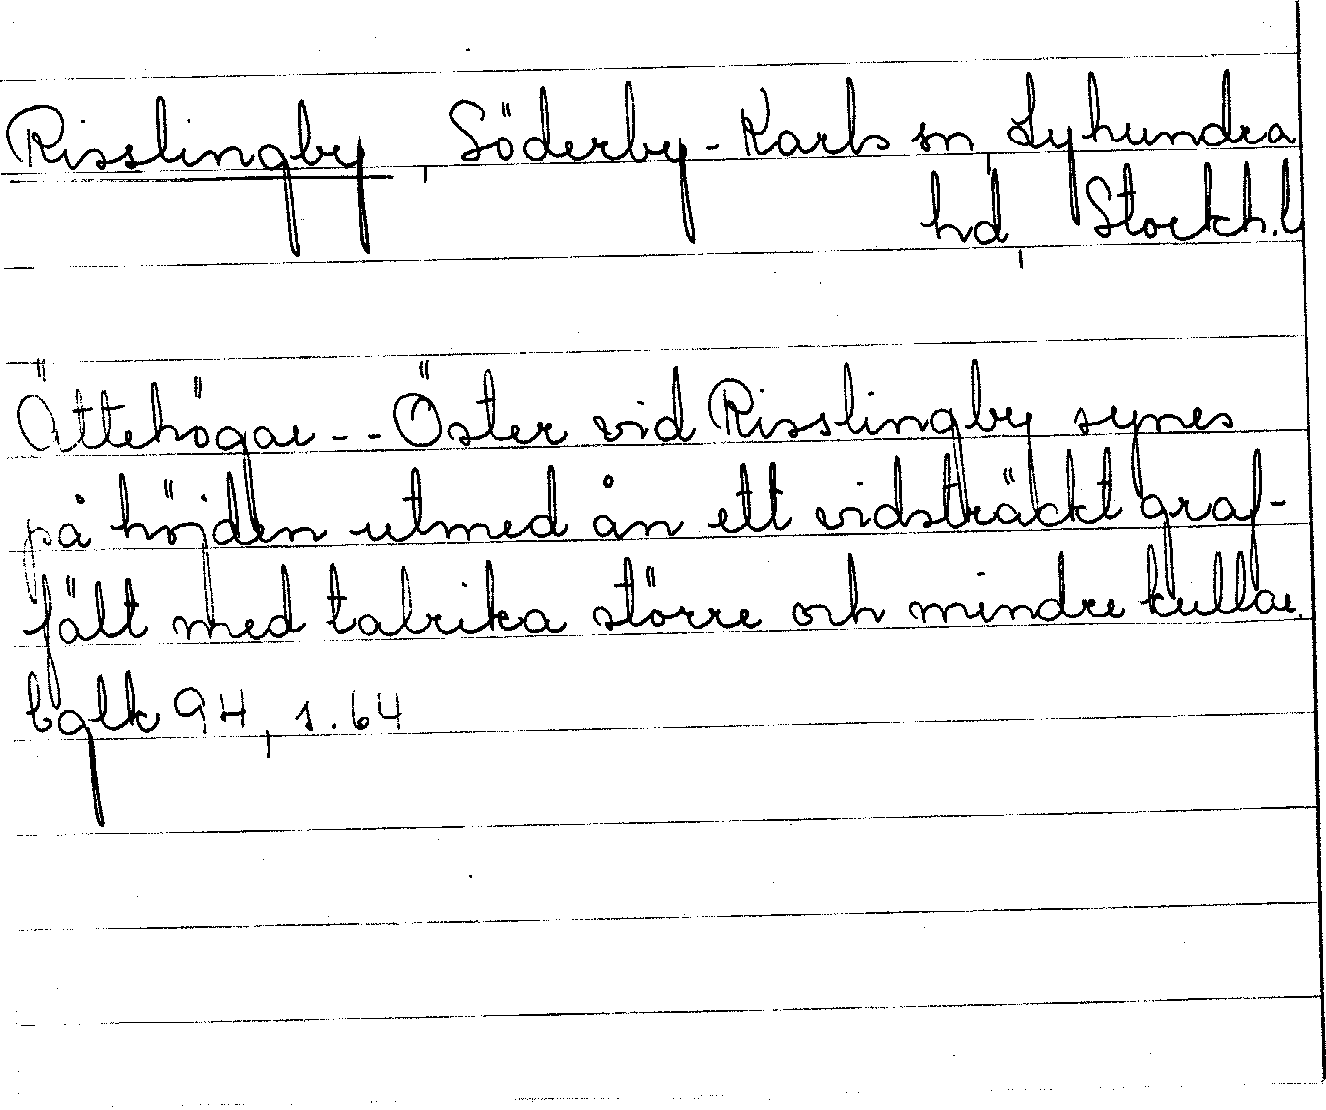 Risslingby, Söderby-Karls sn, Lyhundra
hd, Stockh.l
Ättehögar -- Öster vid Risslingby synes
på höjden utmed ån ett vidsträckt graf-
fält med talrika större och mindre kullar.
bglk 94, s. 64